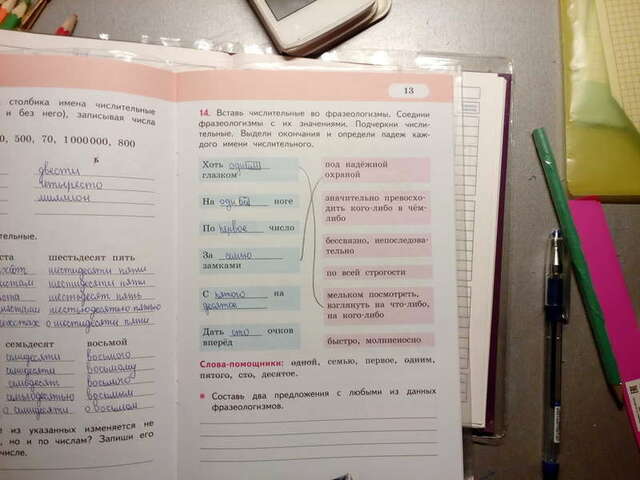 столбика имена числительные
и без него), записывая числа
0, 500, 70, 1 000 000, 800
ь
двести
четыресто
миллион
тельные.
ста шестьдесят пять
шестидесяти пяти
шестидесяти пяти
шестьдесят пять
шестьюдесятью пятью
о шестидесяти пяти
семьдесят восьмой
семидесяти восьмого
семидесяти восьмому
семьдесят восьмого
семьюдесятью восьмым
о семидесяти о восьмом
е из указанных изменяется не
, но и по числам? Запиши его
числе.
13
14. Вставь числительные во фразеологизмы. Соедини
фразеологизмы с их значениями. Подчеркни числи-
тельные. Выдели окончания и определи падеж каж-
дого имени числительного.
Хоть одним
глазком
На одной ноге
По первое число
За семью
замками
С пятого на
десятое
Дать сто очков
вперёд
под надёжной
охраной
значительно превосхо-
дить кого-либо в чём-
либо
бессвязно, непоследова-
тельно
по всей строгости
мельком посмотреть,
взглянуть на что-либо,
на кого-либо
быстро, молниеносно
Слова-помощники: одной, семью, первое, одним,
пятого, сто, десятое.
Составь два предложения с любыми из данных
фразеологизмов.